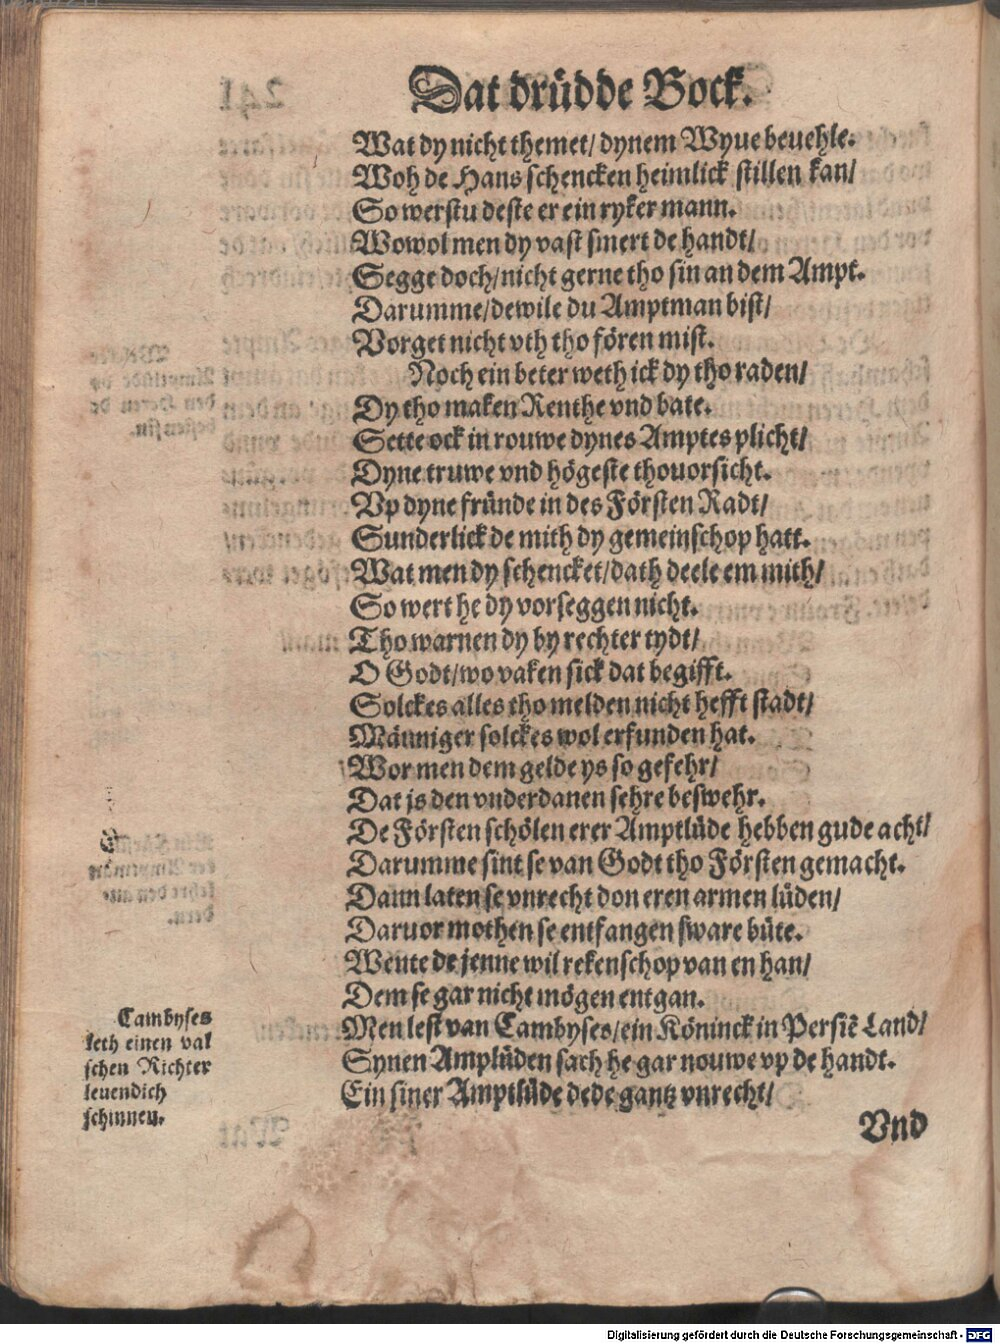 Dat drüdde Bock.
Wat dy nicht themet/ dynem Wyue beuehle.
Woh de Hans schencken heimlick stillen kan/
So werstu deste er ein ryker mann.
Wowol men dy vast smert de handt/
Segge doch/ nicht gerne tho sin an dem Ampt.
Darumme/ dewile du Amptman bist/
Vorget nicht vth tho fören mist.
Noch ein beter weth ick dy tho raden/
Dy tho maken Renthe vnd bate.
Sette ock in rouwe dynes Amptes plicht/
Dyne truwe vnd högeste thouorsicht.
Vp dyne fründe in des Försten Radt/
Sunderlick de mith dy gemeinschop hatt.
Wat men dy schencket/ dath deele em mith/
So wert he dy vorseggen nicht.
Tho warnen dy by rechter tydt/
O Godt/ wo vaken sick dat begifft.
Solckes alles tho melden nicht hefft stadt/
Männiger solckes wol erfunden hat.
Wor men dem gelde ys so gefehr/
Dat js den vnderdanen sehre beswehr.
De Försten schölen erer Amptlüde hebben gude acht/
Darumme sint se van Godt tho Försten gemacht.
Dann laten se vnrecht don eren armen lüden/
Daruor mothen se entfangen sware büte.
Wente de jenne wil rekenschop van en han/
Dem se gar nicht mögen entgan.
Men lest van Cambyses/ ein Köninck in Persiē Land/
Synen Amplüden sach he gar nouwe vp de handt.
Ein siner Amptlüde dede gantz vnrecht/
Cambyses
leth einen val
schen Richter
leuendich
schinnen.
Vnd
Digitalisierung gefördert durch die Deutsche Forschungsgemeinschaft - DFG